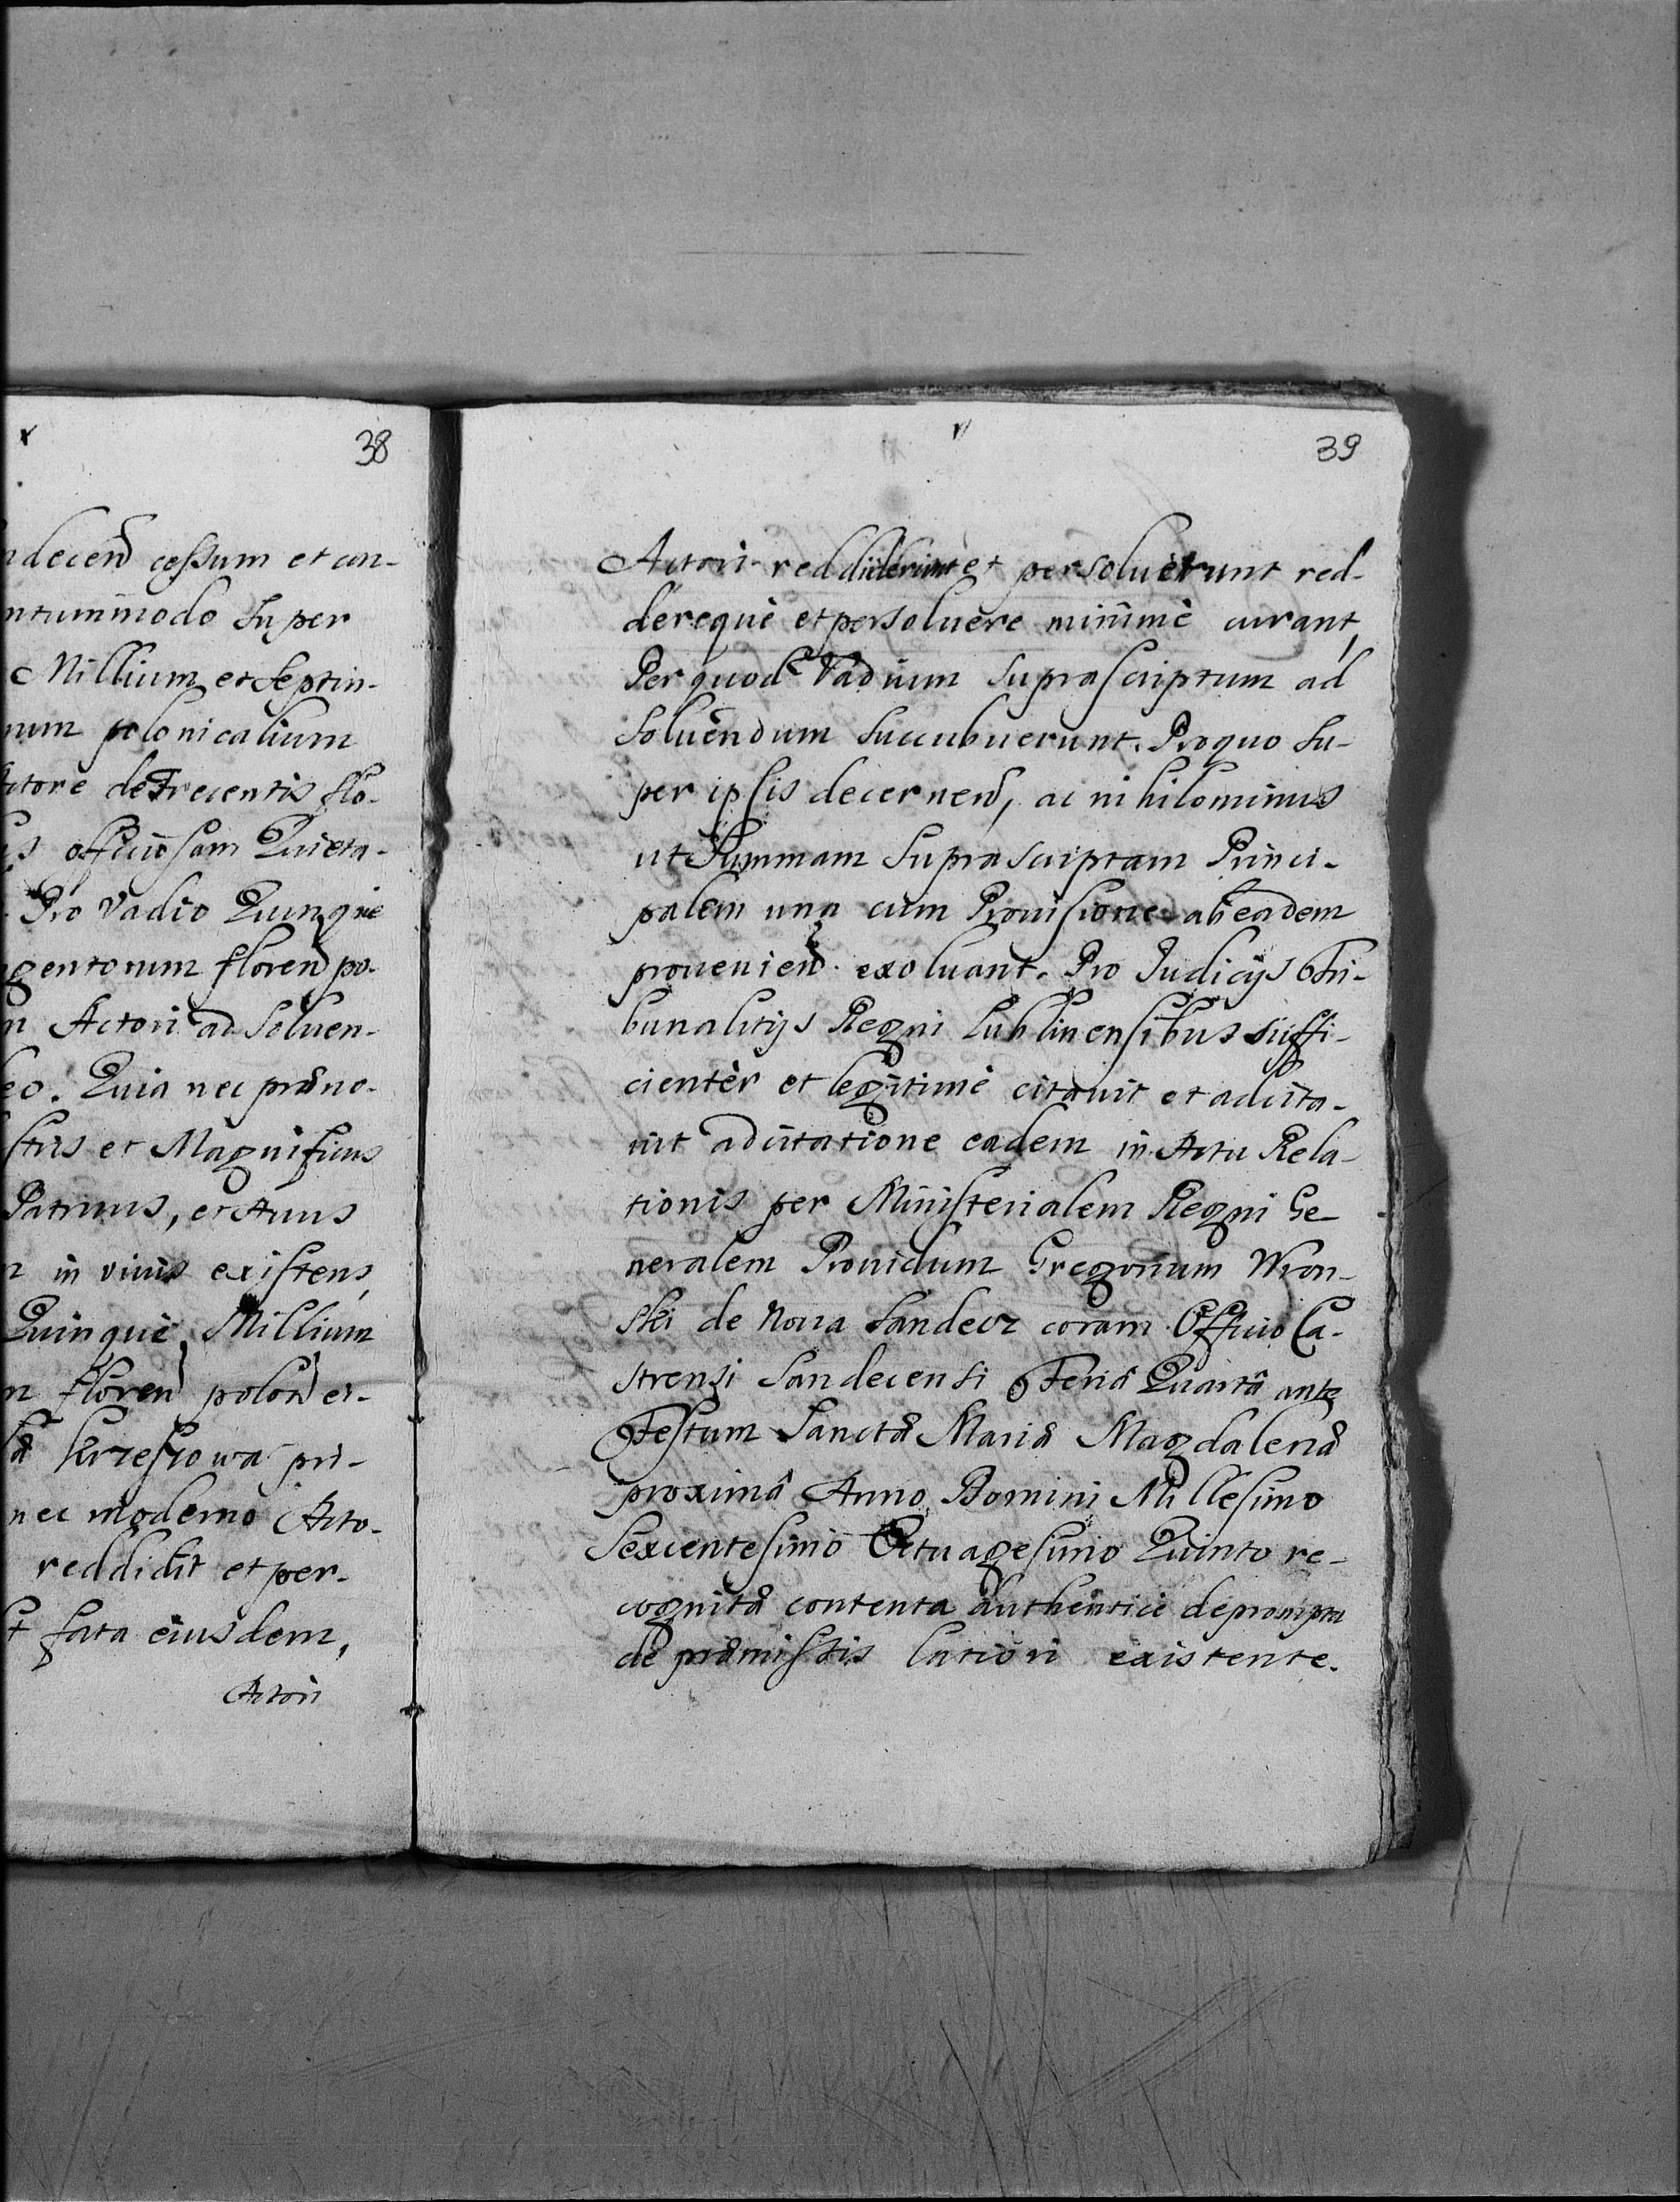 38
ndecen̄ cessum et con-
ntummodo super
Millium et septin-
num polonicalium
Actore de Trecentis flo-
is officiosam Quieta-
Pro Vadio Quinque
ngentorum floren̄ po-
n Actori ad soluen-
eo. Quia nec præno-
stris et Magnificus
Patruus, et Auus
n in viuis existens,
Quinquè, Millium
n floren̄ polon̄ ei-
Krzesżowa pri-
nec moderno Acto-
reddidit et per-
t fata eiusdem,
Actori
39
Actori reddiderunt et persoluèrunt red-
derequè et persoluere minimè curant,
Per quod Vadium suprascriptum ad
soluendum succubuerunt. Pro quo su-
per ipsis decernen̄, ac nihilominus
ut Summam suprascriptam Princi-
palem una cum Prouisione ab eadem
prouenien̄. exoluant. Pro Judicijs Tri-
bunalitijs Regni Lublinensibus suffi-
cientèr et legitimè citauit et adcita-
uit adcitatione eadem in Actu Rela-
tionis per Ministerialem Regni Ge-
neralem Prouidum Gregorium Wron-
ski de Noua Sandecz coram Officio Ca-
strensi Sandecensi Feriâ Quartâ ante
Festum Sanctæ Mariæ Magdalenæ
proximâ Anno Domini Millesimo
Sexcentesimo Octuagesimo Quinto re-
cognitâ contenta authenticè deprompta
de præmissis latiori existente.